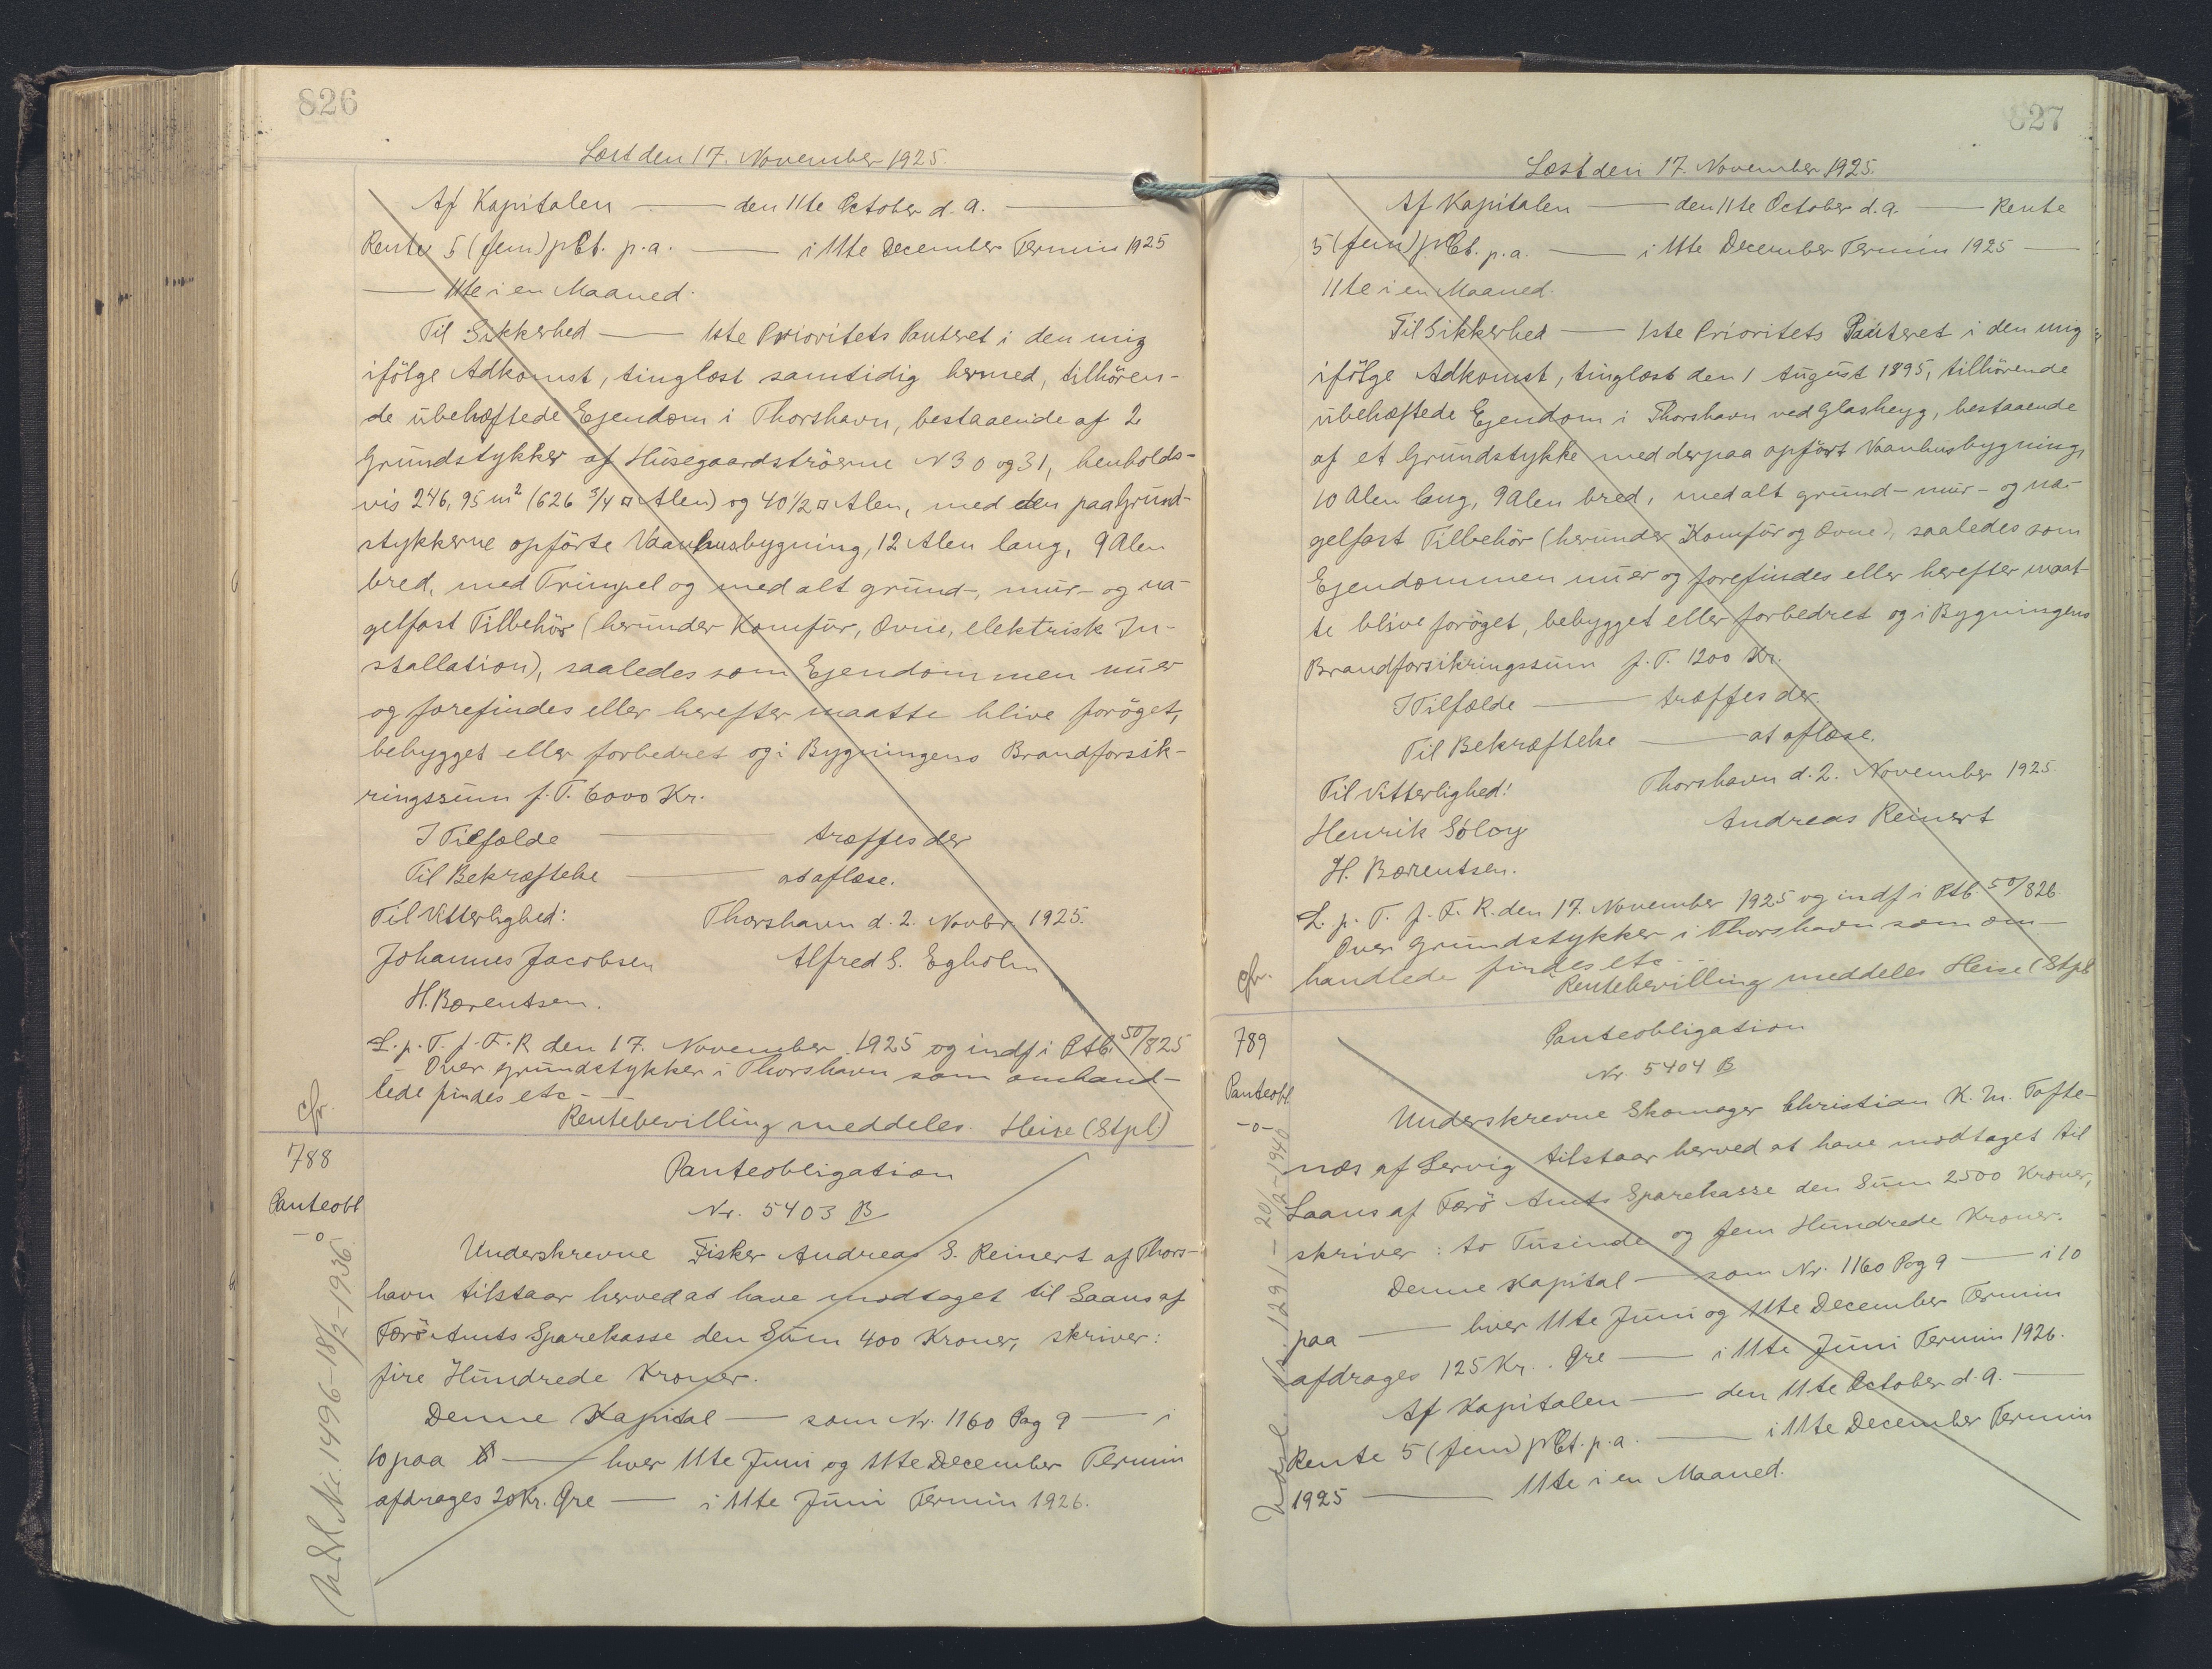 826
Læst den 17. November 1925.
Af Kapitalen — den 11te October d. A. —
Rente 5 (fem) pCt. p.a. — i 11te December Termin 1925
— 11te i en Maaned.
Til Sikkerhed — 1ste Prioritets Panteret i den mig
ifölge Adkomst, tinglæst samtidig hermed, tilhören-
de ubehæftede Ejendom i Thorshavn, bestaaende af 2
Grundstykker af Husegaardströerne N 30 og 31, henholds-
vis 246,95 m² (626 3/4 □ Alen) og 40 1/2 □ Alen, med den paa Grund-
stykkerne opförte Vaanhusbygning, 12 Alen lang, 9 Alen
bred, med Trimpel og med alt grund-, mur- og na-
gelfast Tilbehör (herunder Komfur, Ovne, elektrisk In-
stallation), saaledes som Ejendommen nu er
og forefindes eller herefter maatte blive foröget,
bebygget eller forbedret og i Bygningens Brandforsik-
ringssum f. T. 6000 Kr.
I Tilfælde — træffes der
Til Bekræftelse — at aflæse.
Til Vitterlighed: Thorshavn d. 2. Novbr. 1925.
Johannes Jacobsen Alfred S. Egholm
H. Bærentsen.
L. p. T. f. F. R den 17. November 1925 og indf i Ptb. 50/825
Over Grundstykker i Thorshavn som omhand-
lede findes etc - -
cfr. Rentebevilling meddeles. Heise (Stpl)
788 Panteobligation
Panteobl Nr. 5403 B
-o-
Underskrevne Fisker Andreas S. Reinert af Thors-
havn tilstaar herved at have modtaget til Laans af
Færö Amts Sparekasse den Sum 400 Kroner, skriver:
fire Hundrede Kroner.
Denne Kapital — som Nr. 1160 Pag 9 — i
10 paa — hver 11te Juni og 11te December Termin
afdrages 20 Kr. Öre — i 11te Juni Termin 1926.
Udsl. Nr. 1496 - 18/2 - 1936.
827
Læst den 17. November 1925.
Af Kapitalen — den 11te October d. A. — Rente
5 (fem) pCt. p.a. — i 11te December Termin 1925 —
11te i en Maaned.
Til Sikkerhed — 1ste Prioritets Panteret i den mig
ifölge Adkomst, tinglæst den 1 August 1895, tilhörende
ubehæftede Ejendom i Thorshavn ved Glasheyg, bestaaende
af et Grundstykke med derpaa opfört Vaanhusbygning,
10 Alen lang, 9 Alen bred, med alt grund- mur- og na-
gelfast Tilbehör (herunder Komfur og Ovne), saaledes som
Ejendommen nu er og forefindes eller herefter maat-
te blive foröget, bebygget eller forbedret og i Bygningens
Brandforsikringssum f. T. 1200 Kr.
I Tilfælde — træffes der.
Til Bekræftelse — at aflæse.
Til Vitterlighed! Thorshavn d. 2. November 1925.
Henrik Andreas Reinert
H. Bærentsen.
L. p. T. f. F. R. den 17. November 1925 og indf i Ptb. 50/826
Over Grundstykker i Thorshavn som om-
handlede findes etc - -
cfr. Rentebevilling meddeles Heise (Stpl
789 Panteobligation
Panteobl. Nr. 5404 B
-o-
Underskrevne Skomager Christian K. M. Tofte-
næs af Lervig tilstaar herved at have modtaget til
Laans af Færö Amts Sparekasse den Sum 2500 Kroner,
skriver: to Tusinde og fem Hundrede Kroner.
Denne Kapital — som Nr. 1160 Pag 9 — i 10
paa — hver 11te Juni og 11te December Termin
afdrages 125 Kr. Öre — i 11te Juni Termin 1926.
Af Kapitalen — den 11te October d. A. —
Rente 5 (fem) pCt. p.a. — i 11te December Termin
1925 — 11te i en Maaned.
Udsl. Nr. 1291 - 20/12 - 1940